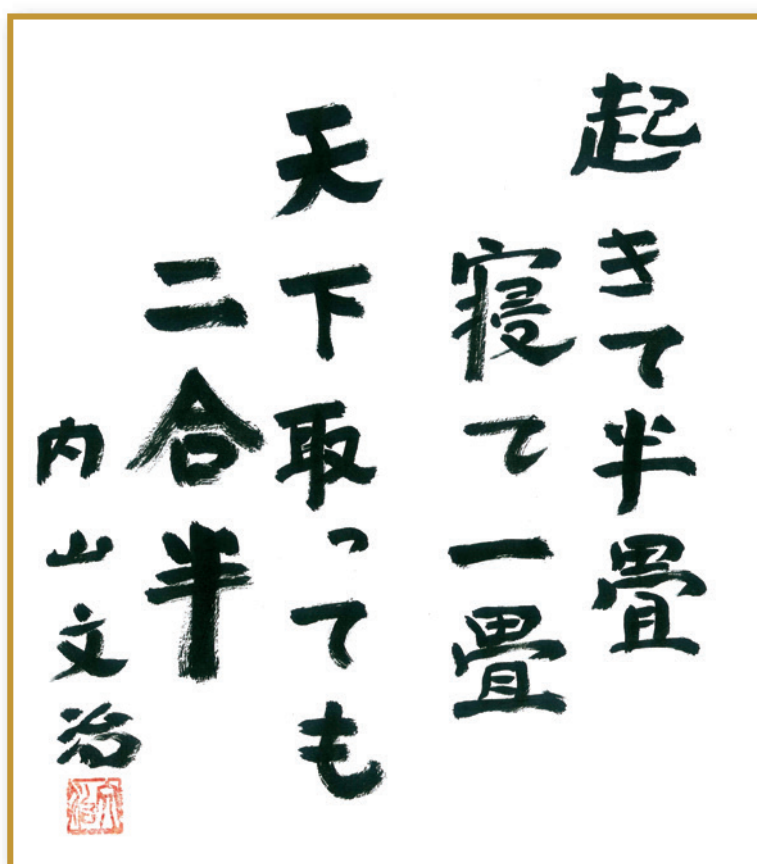 起きて半畳
寝て一畳
天下取っても
二合半
内山文治